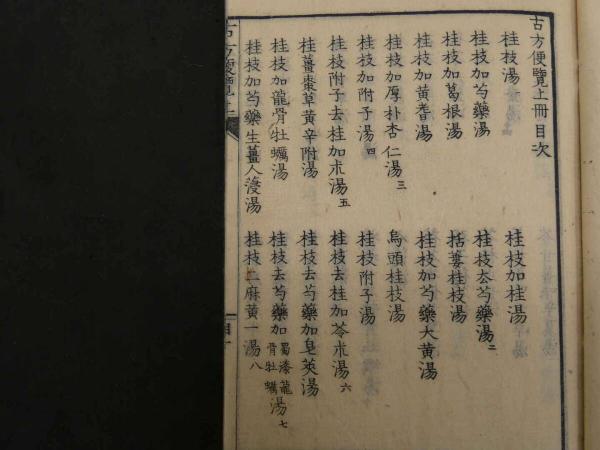 古方便覽上冊目次
桂枝湯
桂枝加桂湯
桂枝加芍藥湯
桂枝去芍藥湯二
桂枝加葛根湯
括蔞桂枝湯
桂枝加黃耆湯
桂枝加芍藥大黃湯
桂枝加厚朴杏仁湯三
烏頭桂枝湯
桂枝加附子湯四
桂枝附子湯
桂枝附子去桂加朮湯五
桂枝去桂加苓朮湯六
桂薑棗草黃辛附湯
桂枝去芍藥加皂莢湯
桂枝加龍骨牡蠣湯
桂枝去芍藥加蜀漆龍骨牡蠣湯七
桂枝加芍藥生薑人蓡湯
桂枝二麻黃一湯八
古方便覽上
目一